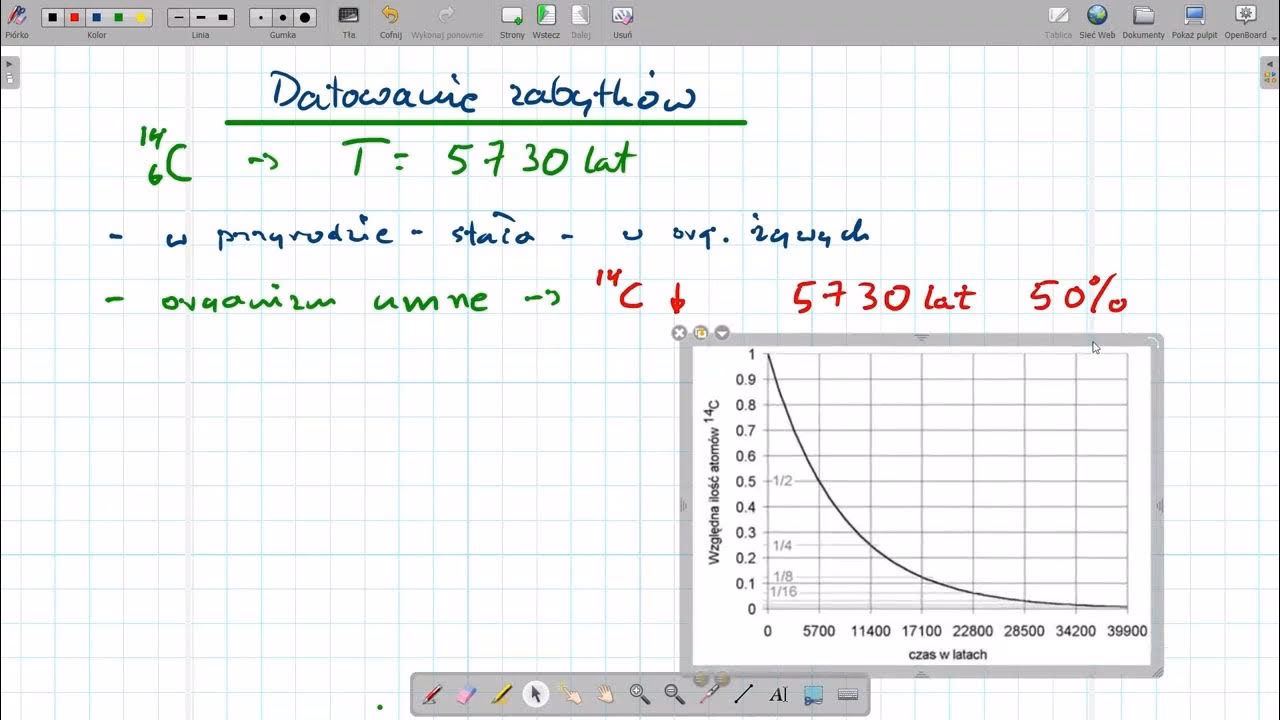 Piórko Kolor Linia Gumka Tła Cofnij Wykonaj ponownie Strony Wstecz Dalej Usuń Tablica Sieć Web Dokumenty Pokaż pulpit OpenBoard
Datowanie zabytków
14 6 C -> T = 5730 lat
- w przyrodzie - stała - w org. żywych
- organizm umrze -> 14 C ↓ 5730 lat 50%
Względna ilość atomów 14C
1
0.9
0.8
0.7
0.6
0.5 1/2
0.4
0.3
1/4
0.2
1/8
0.1
1/16
0
0 5700 11400 17100 22800 28500 34200 39900
czas w latach
AI